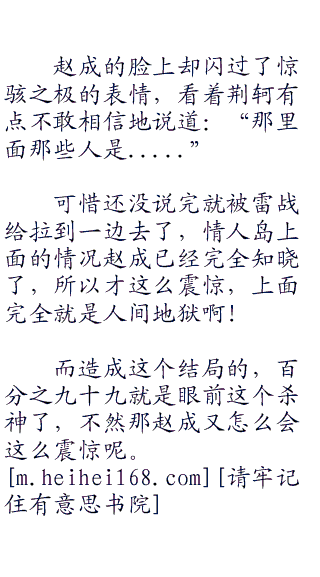 赵成的脸上却闪过了惊
骇之极的表情，看着荆轲有
点不敢相信地说道：“那里
面那些人是.....”
可惜还没说完就被雷战
给拉到一边去了，情人岛上
面的情况赵成已经完全知晓
了，所以才这么震惊，上面
完全就是人间地狱啊！
而造成这个结局的，百
分之九十九就是眼前这个杀
神了，不然那赵成又怎么会
这么震惊呢。
[m.heihei168.com][请牢记
住有意思书院]